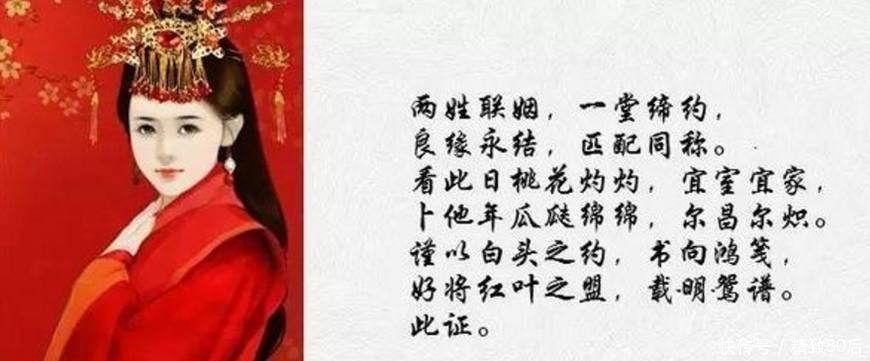 两姓联姻，一堂缔约，
良缘永结，匹配同称。
看此日桃花灼灼，宜室宜家，
卜他年瓜瓞绵绵，尔昌尔炽。
谨以白头之约，书向鸿笺，
好将红叶之盟，载明鸳谱。
此证。
快传号 / 精致80后